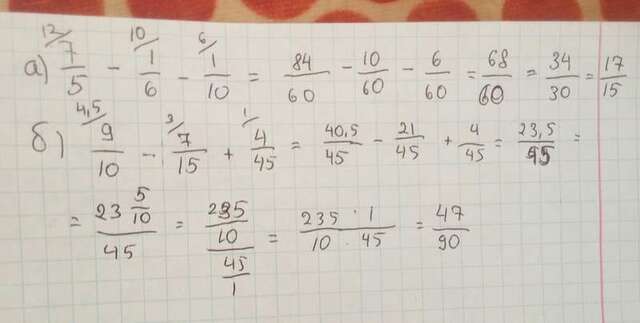 а) 12/ 7/5 - 10/ 1/6 - 6/ 1/10 = 84/60 - 10/60 - 6/60 = 68/60 = 34/30 = 17/15
б) 4,5/ 9/10 - 3/ 7/15 + 1/ 4/45 = 40,5/45 - 21/45 + 4/45 = 23,5/45 =
= 23 5/10 / 45 = 235/10 / 45/1 = 235 · 1 / 10 · 45 = 47/90